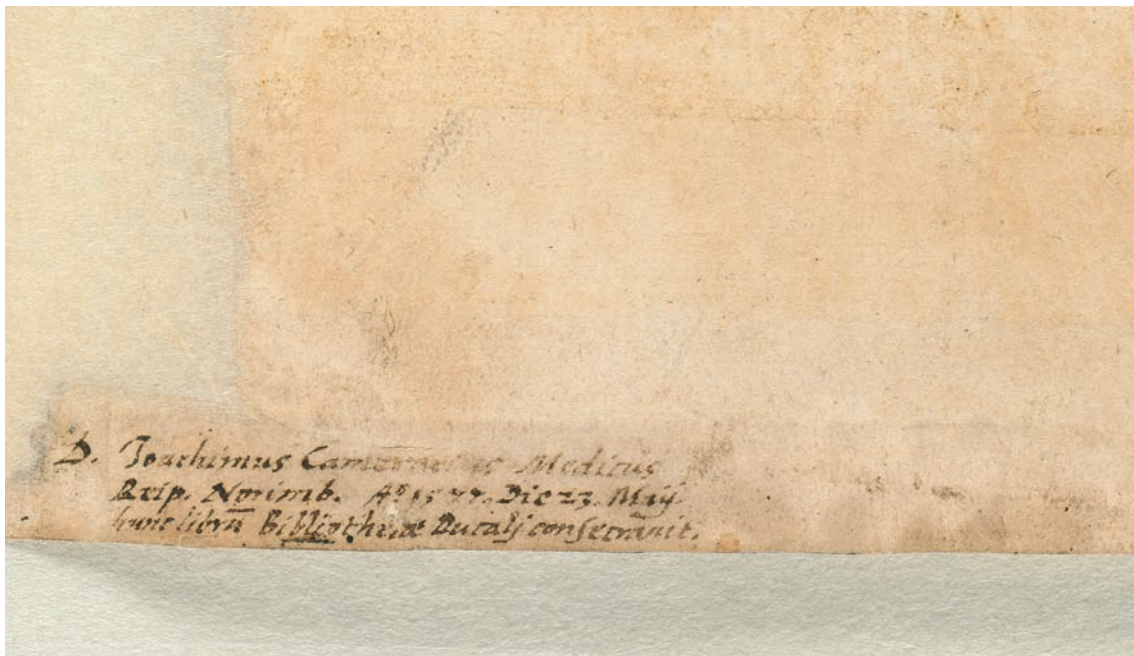 D. Joachimus Camerarius Medicus
Reip. Norimb. Aº 1577. Die 23. Maij
hunc librū Bibliothecæ Ducalj consecrauit.